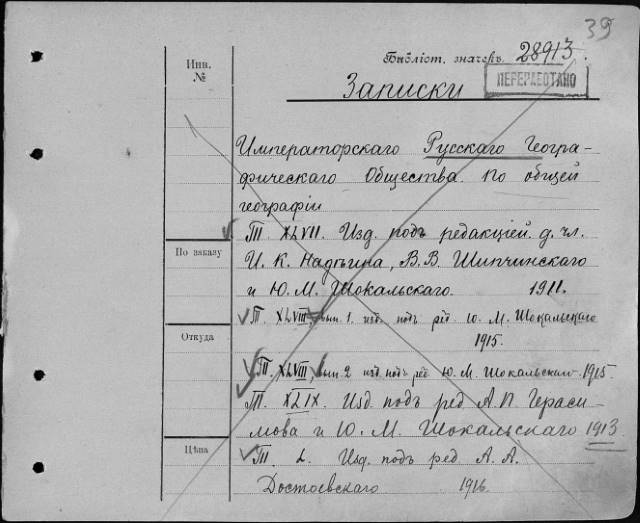 39
Инв.
№
Библіот. значекъ 28913.
ПЕРЕРАБОТАНО
Записки
Императорскаго Русскаго Геогра-
фическаго Общества по общей
географіи
Т. XLVII. Изд. подъ редакціей д. чл.
По заказу
И. К. Надѣина, В. В. Шипчинскаго
и Ю. М. Шокальскаго. 1911.
Т. XLVIII, вып. 1. изд. подъ ред. Ю. М. Шокальскаго
Откуда
1915.
Т. XLVIII, вып. 2 изд. подъ ред. Ю. М. Шокальскаго 1915
Т. XLIX. Изд. подъ ред. А. П. Гераси-
мова и Ю. М. Шокальскаго 1913
Цѣна
Т. L. Изд. подъ ред. А. А.
Достоевскаго 1916.